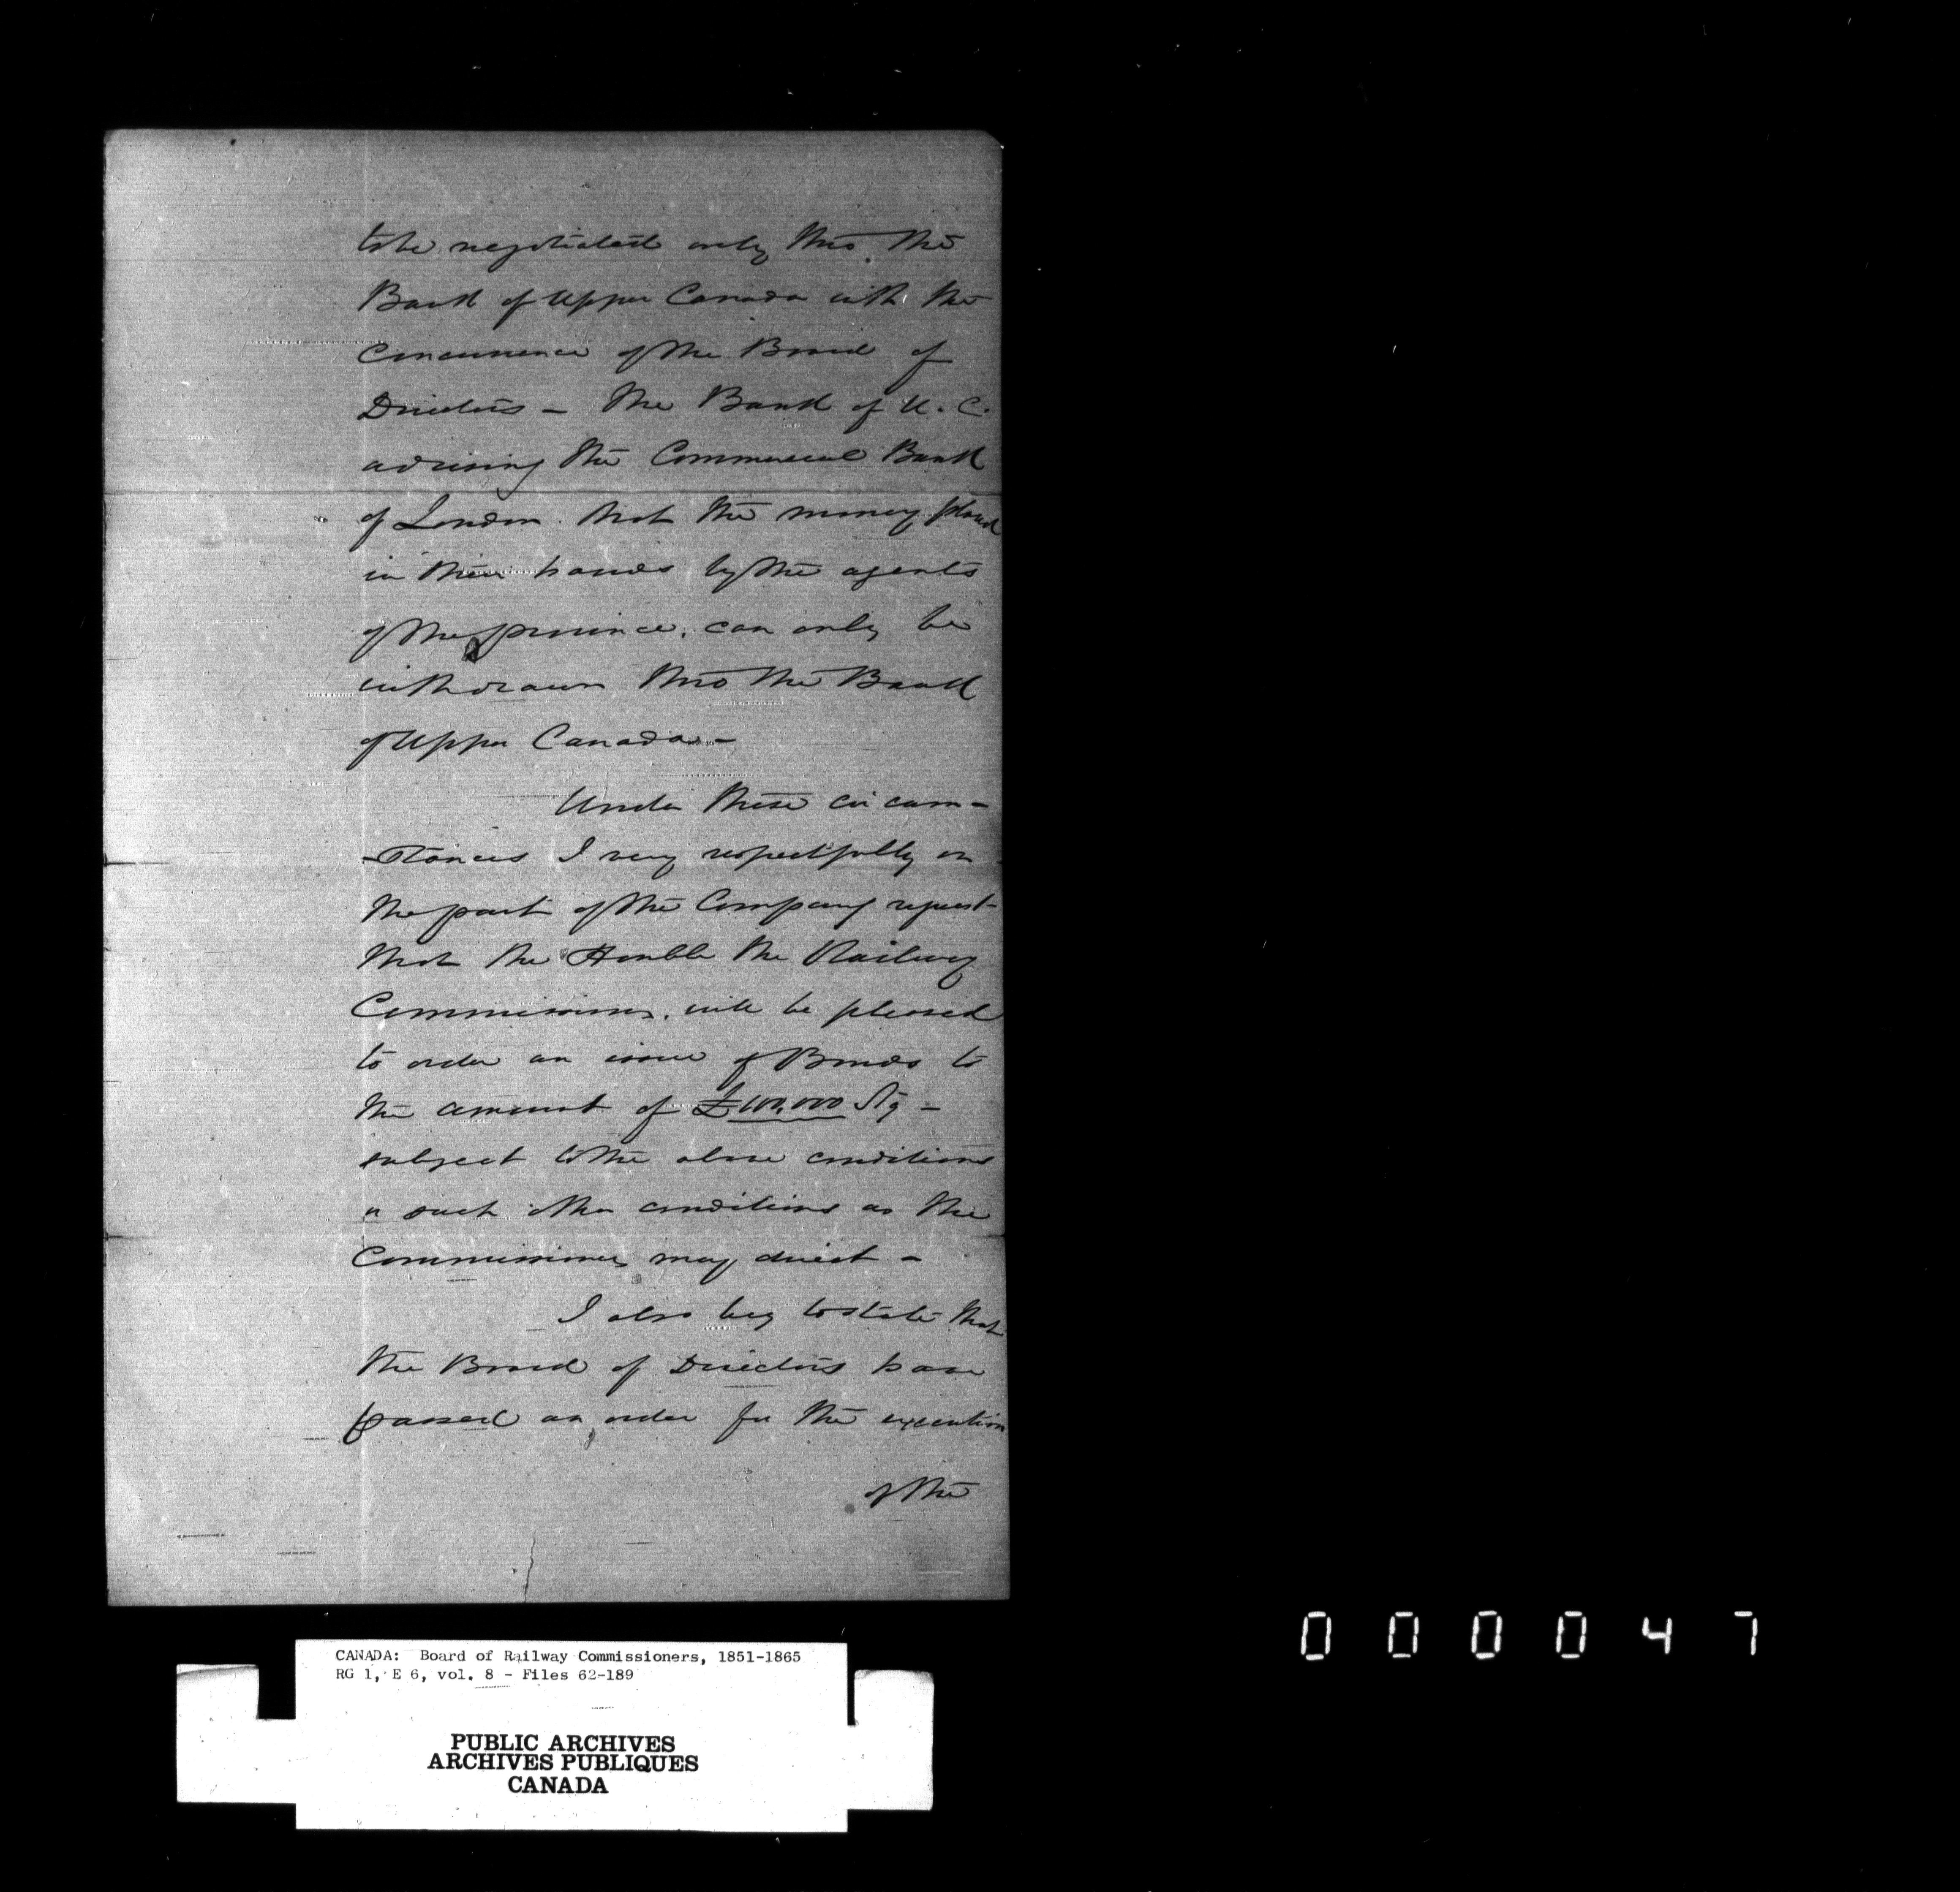 to be negotiated only thro the
Bank of Upper Canada with the
Concurrence of the Board of
Directors – The Bank of U. C.
advising the Commercial Bank
of London that the money placed
in their hands by the agents
of the province, can only be
withdrawn thro the Bank
of Upper Canada –
Under these circum-
-stances I very respectfully on
the part of the Company request
that the Honble the Railway
Commissioners, will be pleased
to order an issue of Bonds to
the amount of £100,000 Stg –
subject to the above conditions
or such other conditions as the
Commissioners may direct –
I also beg to state that
the Board of Directors have
passed an order for the execution
of the
CANADA: Board of Railway Commissioners, 1851-1865
RG 1, E 6, vol. 8 - Files 62-189
PUBLIC ARCHIVES
ARCHIVES PUBLIQUES
CANADA
0 0 0 0 4 7